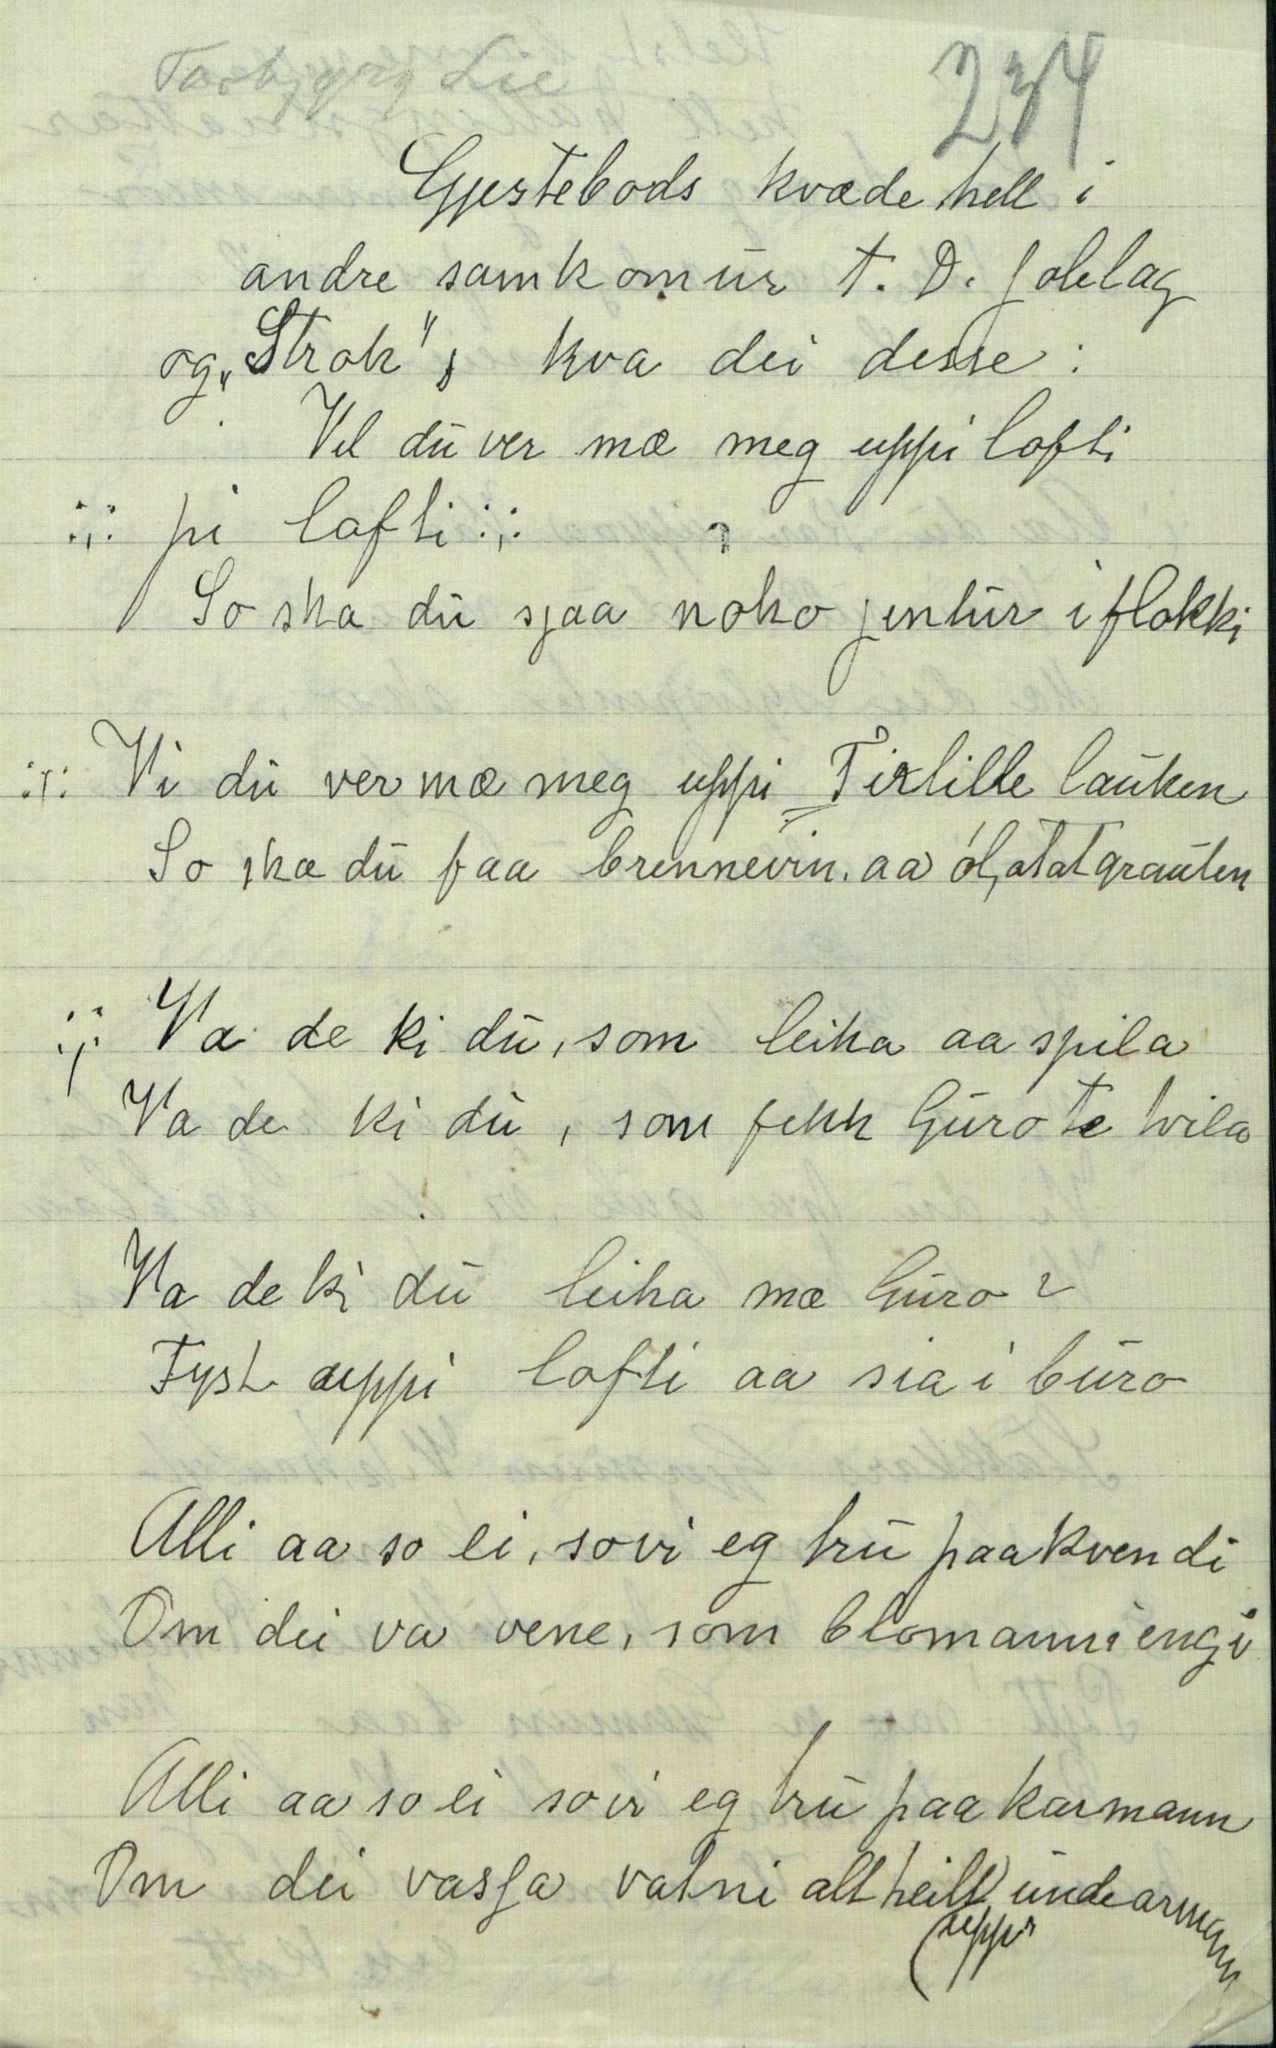 Torbjørg Lie
234
Gjestebods kvæde hell i
andre samkomūr t. D. jolelag
og „Strok", kva dei desse:
Vil dū ver mæ meg uppi lofti
:,: pi lofti :,:
So ska dū sjaa noko jentūr i flokki
:,: Vi dū ver mæ meg uppi Tirlille laūken
So ska dū faa brennevin. aa ól, atat graūten
:,: Va de ki dū, som leika aa spila
Va de ki dū, som fekk Gūro te kvila
Va de ki dū leika mæ Gūro?
Fyst uppi lofti aa sia i būro
Alli aa so ei, so vi eg trū paa kvendi
Om dei va vene, som blomann i engi
Alli aa so ei so vi eg trū paa karmann
Om dei vassa vatni alt heilt ūnde armann
(uppi